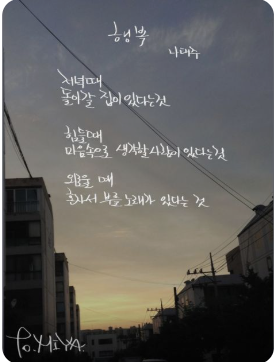 행복
나태주
저녁때
돌아갈 집이 있다는것
힘들때
마음속으로 생각할 사람이 있다는것
외로울 때
혼자서 부를 노래가 있다는 것
To. MIYA.